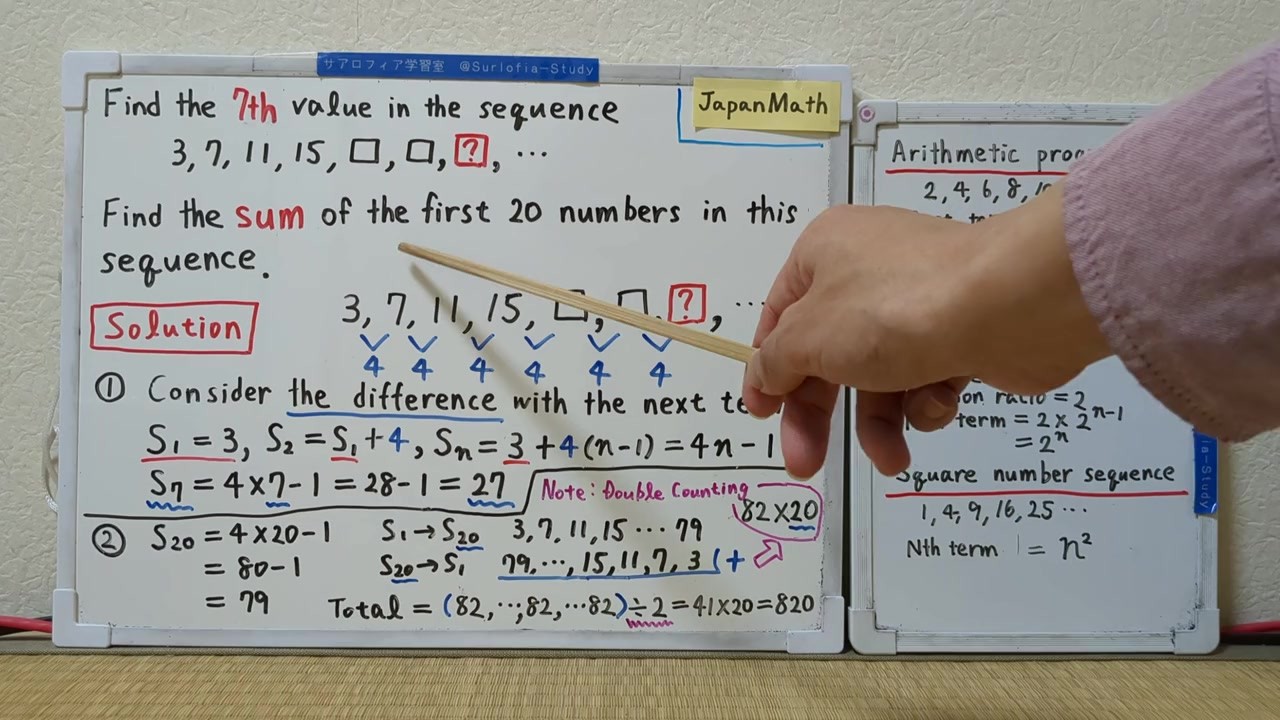 サアロフィア学習室 @Surlofia-Study
JapanMath
Find the 7th value in the sequence
3, 7, 11, 15, □, □, ?, ⋯
Find the sum of the first 20 numbers in this
sequence.
Solution
3, 7, 11, 15, □, □, ?, ⋯
4 4 4 4 4 4
① Consider the difference with the next
S₁ = 3, S₂ = S₁ + 4, Sn = 3 + 4(n-1) = 4n - 1
S₇ = 4×7-1 = 28-1 = 27
Note: Double Counting
82×20
② S₂₀ = 4×20-1
= 80-1
= 79
S₁→S₂₀ 3, 7, 11, 15 ⋯ 79
S₂₀→S₁ 79, ⋯, 15, 11, 7, 3 (+
Total = (82, ⋯, 82, ⋯ 82) ÷ 2 = 41×20 = 820
Arithmetic
2, 4, 6, 8,
ratio = 2
term = 2 × 2ⁿ⁻¹
= 2ⁿ
Square number sequence
1, 4, 9, 16, 25 ⋯
Nth term = n²